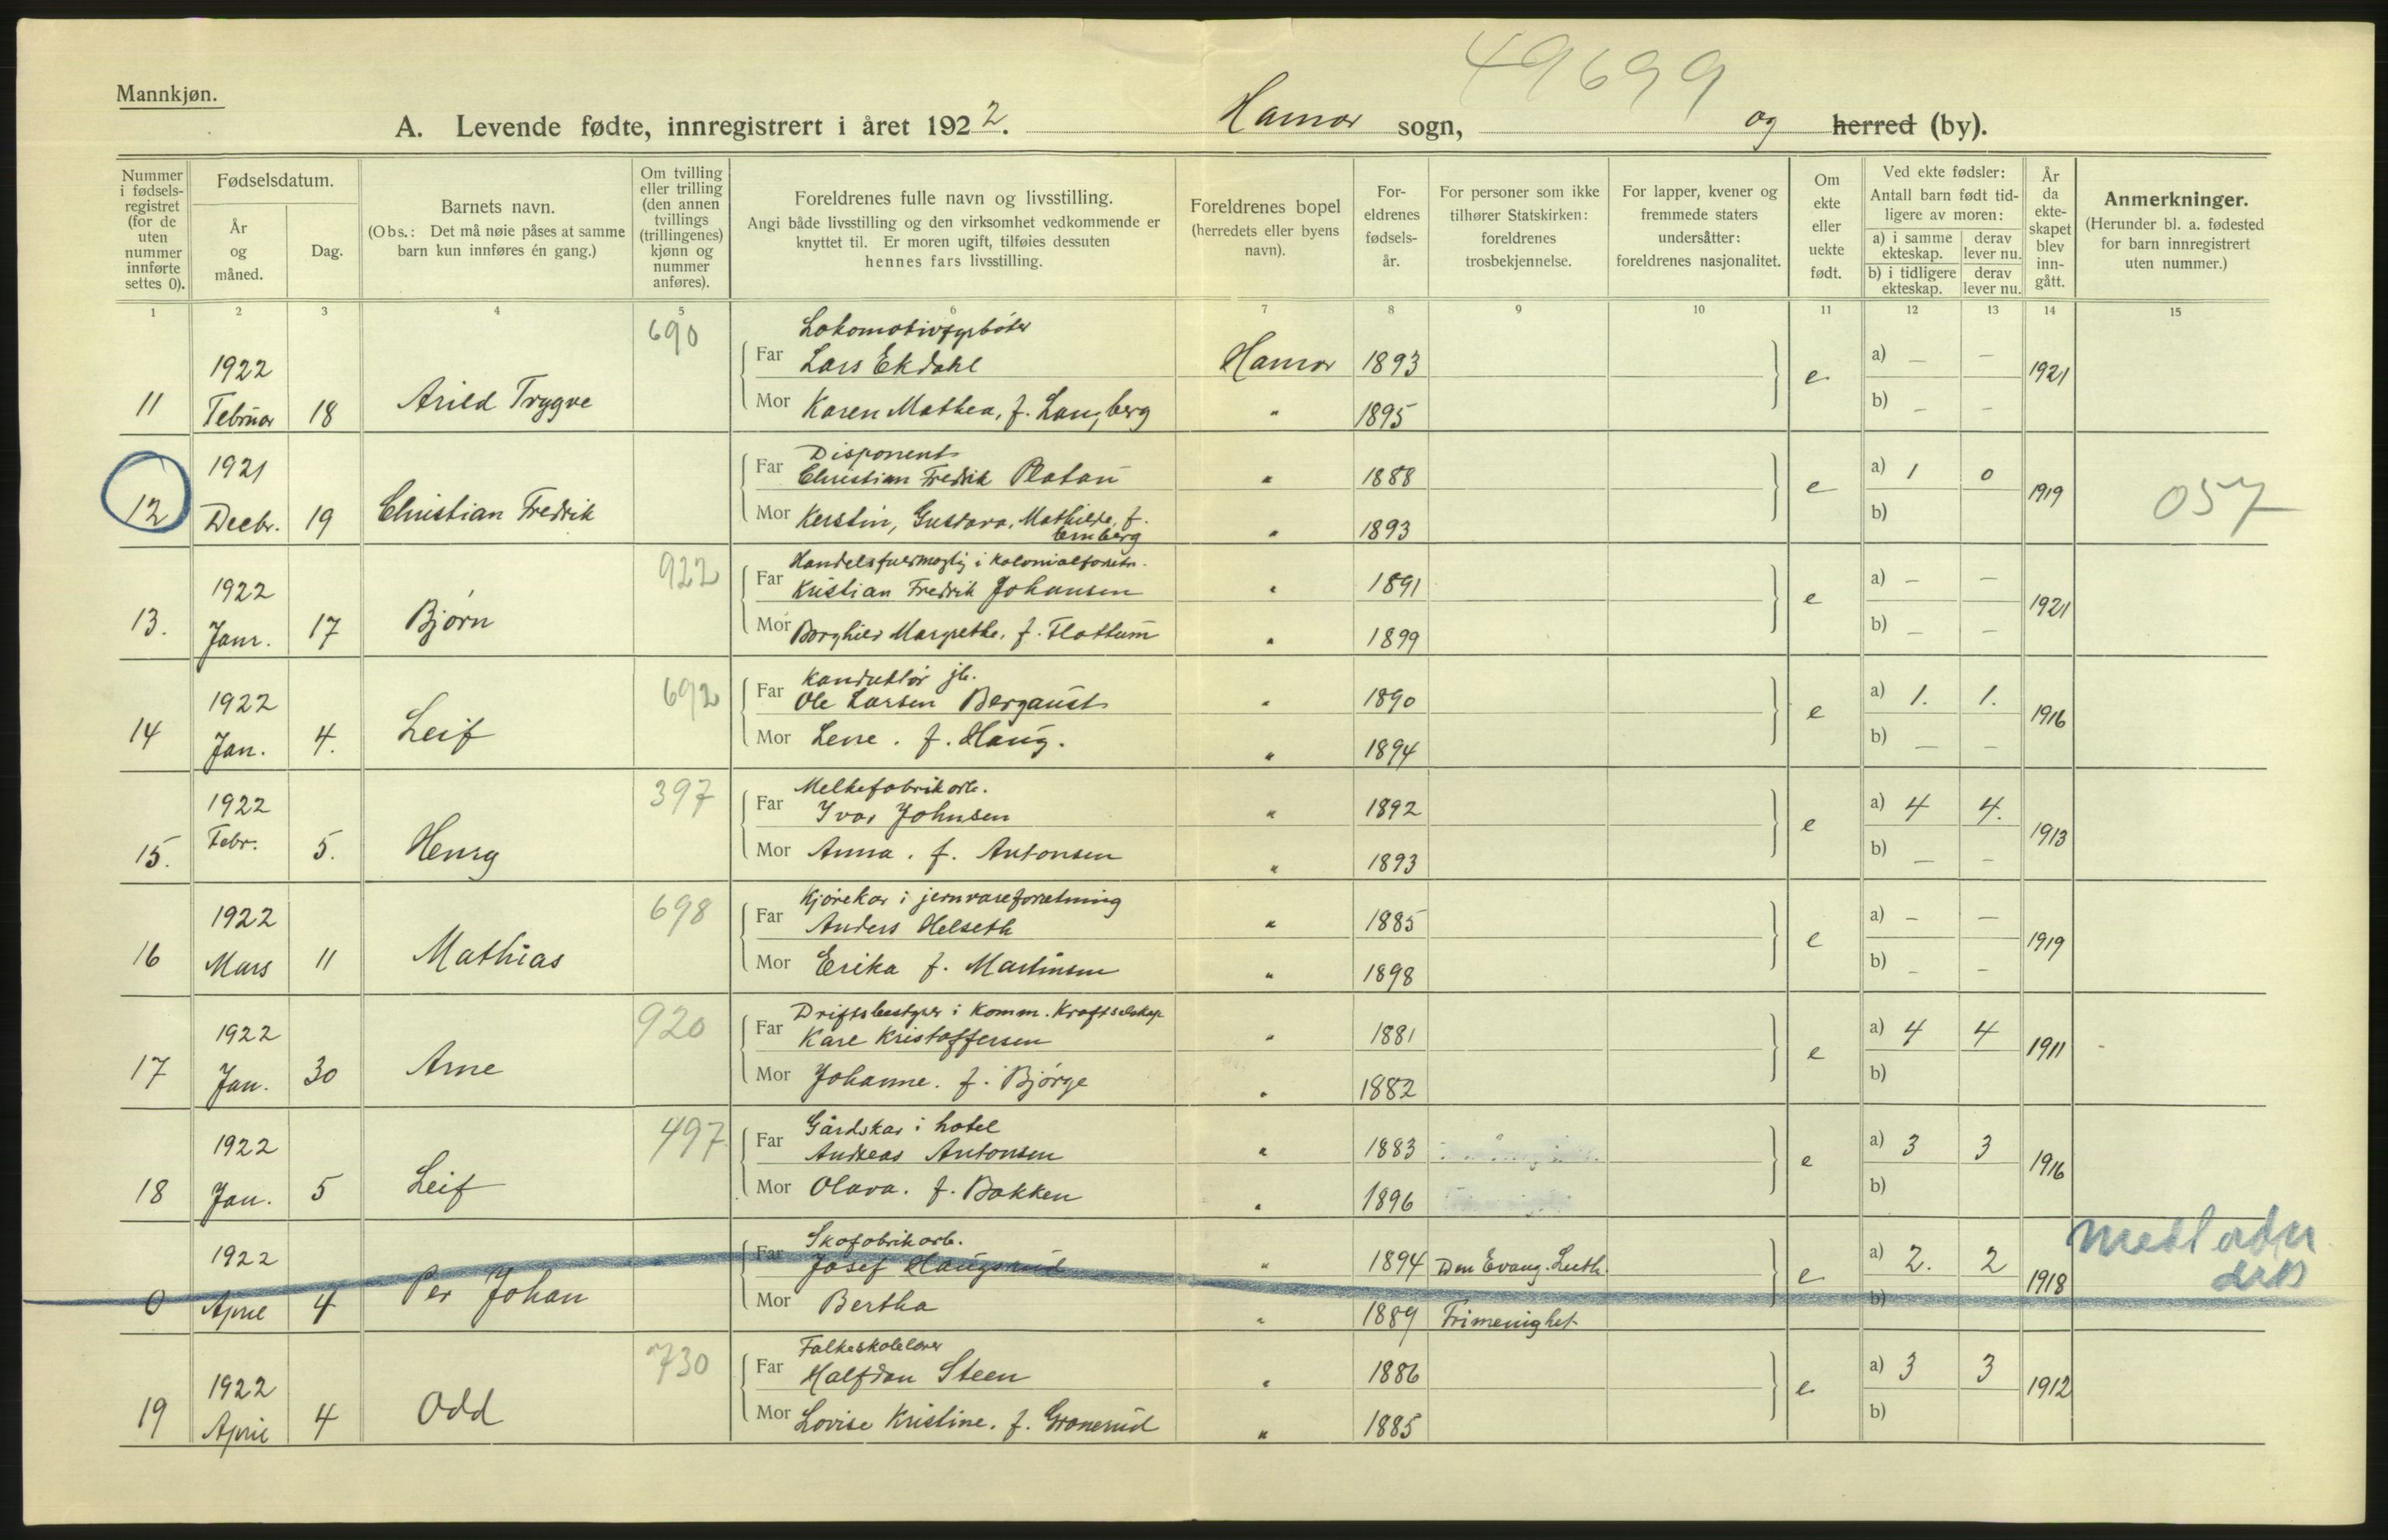 49699
Mannkjøn.
A. Levende fødte, innregistrert i året 1922. Hamar sogn, og herred (by).
Nummer i fødsels-registret (for de uten nummer innførte settes 0).
Fødselsdatum.
År og måned.
Dag.
Barnets navn.
(Obs.: Det må nøie påses at samme barn kun innføres én gang.)
Om tvilling eller trilling (den annen tvillings (trillingenes) kjønn og nummer anføres).
Foreldrenes fulle navn og livsstilling.
Angi både livsstilling og den virksomhet vedkommende er knyttet til. Er moren ugift, tilføies dessuten hennes fars livsstilling.
Foreldrenes bopel (herredets eller byens navn).
For-eldrenes fødsels-år.
For personer som ikke tilhører Statskirken: foreldrenes trosbekjennelse.
For lapper, kvener og fremmede staters undersåtter: foreldrenes nasjonalitet.
Om ekte eller uekte født.
Ved ekte fødsler: Antall barn født tid-ligere av moren:
a) i samme ekteskap. derav lever nu.
b) i tidligere ekteskap. derav lever nu.
År da ekte-skapet blev inn-gått.
Anmerkninger.
(Herunder bl. a. fødested for barn innregistrert uten nummer.)
1 2 3 4 5 6 7 8 9 10 11 12 13 14 15
690 Lokomotivfyrbøter
1922 Far Lars Ekdahl Hamar 1893 a) – –
11 Februar 18 Arild Trygve e 1921
Mor Karen Mathea, f. Langberg " 1895 b) – –
1921 Disponent
Far Christian Fredrik Platou " 1888 a) 1 0
12 Decbr. 19 Christian Fredrik e 1919 057
Mor Kerstin, Gustava, Mathilde, f. " 1893 b)
922 Handelsfuldmægtig i kolonialforretn.
1922 Far Kristian Fredrik Johansen " 1891 a) – –
13. Janr. 17 Bjørn e 1921
Mor Borghild Margrethe, f. Flattum " 1899 b) – –
692 Konduktør jb.
1922 Far Ole Larsen Bergaust " 1890 a) 1. 1.
14 Jan. 4. Leif e 1916
Mor Lene. f. Haug. " 1894 b) – –
397 Melkefabrikarb.
1922 Far Ivar Johnsen " 1892 a) 4 4.
15. Febr. 5. Henry e 1913
Mor Anna. f. Antonsen " 1893 b) – –
698 Kjørekar i jernvareforretning
1922 Far Anders Helseth " 1885 a) – –
16 Mars 11 Mathias e 1919
Mor Erika f. Martinsen " 1898 b) – –
920 Driftsbestyrer i Komm. Kraftselskap
1922 Far Kåre Kristoffersen " 1881 a) 4 4
17 Jan. 30 Arne e 1911 -
Mor Johanne. f. Bjørge " 1882 b)
497 Gårdskar i hotel
1922 Far Andreas Antonsen " 1883 a) 3 3
18 Jan. 5 Leif e 1916
Mor Olava. f. Bakken " 1896 b)
Skofabrikarb.
1922 Far Josef Haugsrud " 1894 Den Evang. Luth. a) 2. 2
0 April 4 Per Johan e 1918
Mor Bertha " 1889 Frimenighet b)
730 Folkeskolelærer
1922 Far Halfdan Steen " 1886 a) 3 3
19 April 4 Odd e 1912
Mor Lovise Kristine. f. Grønerud " 1885 b)